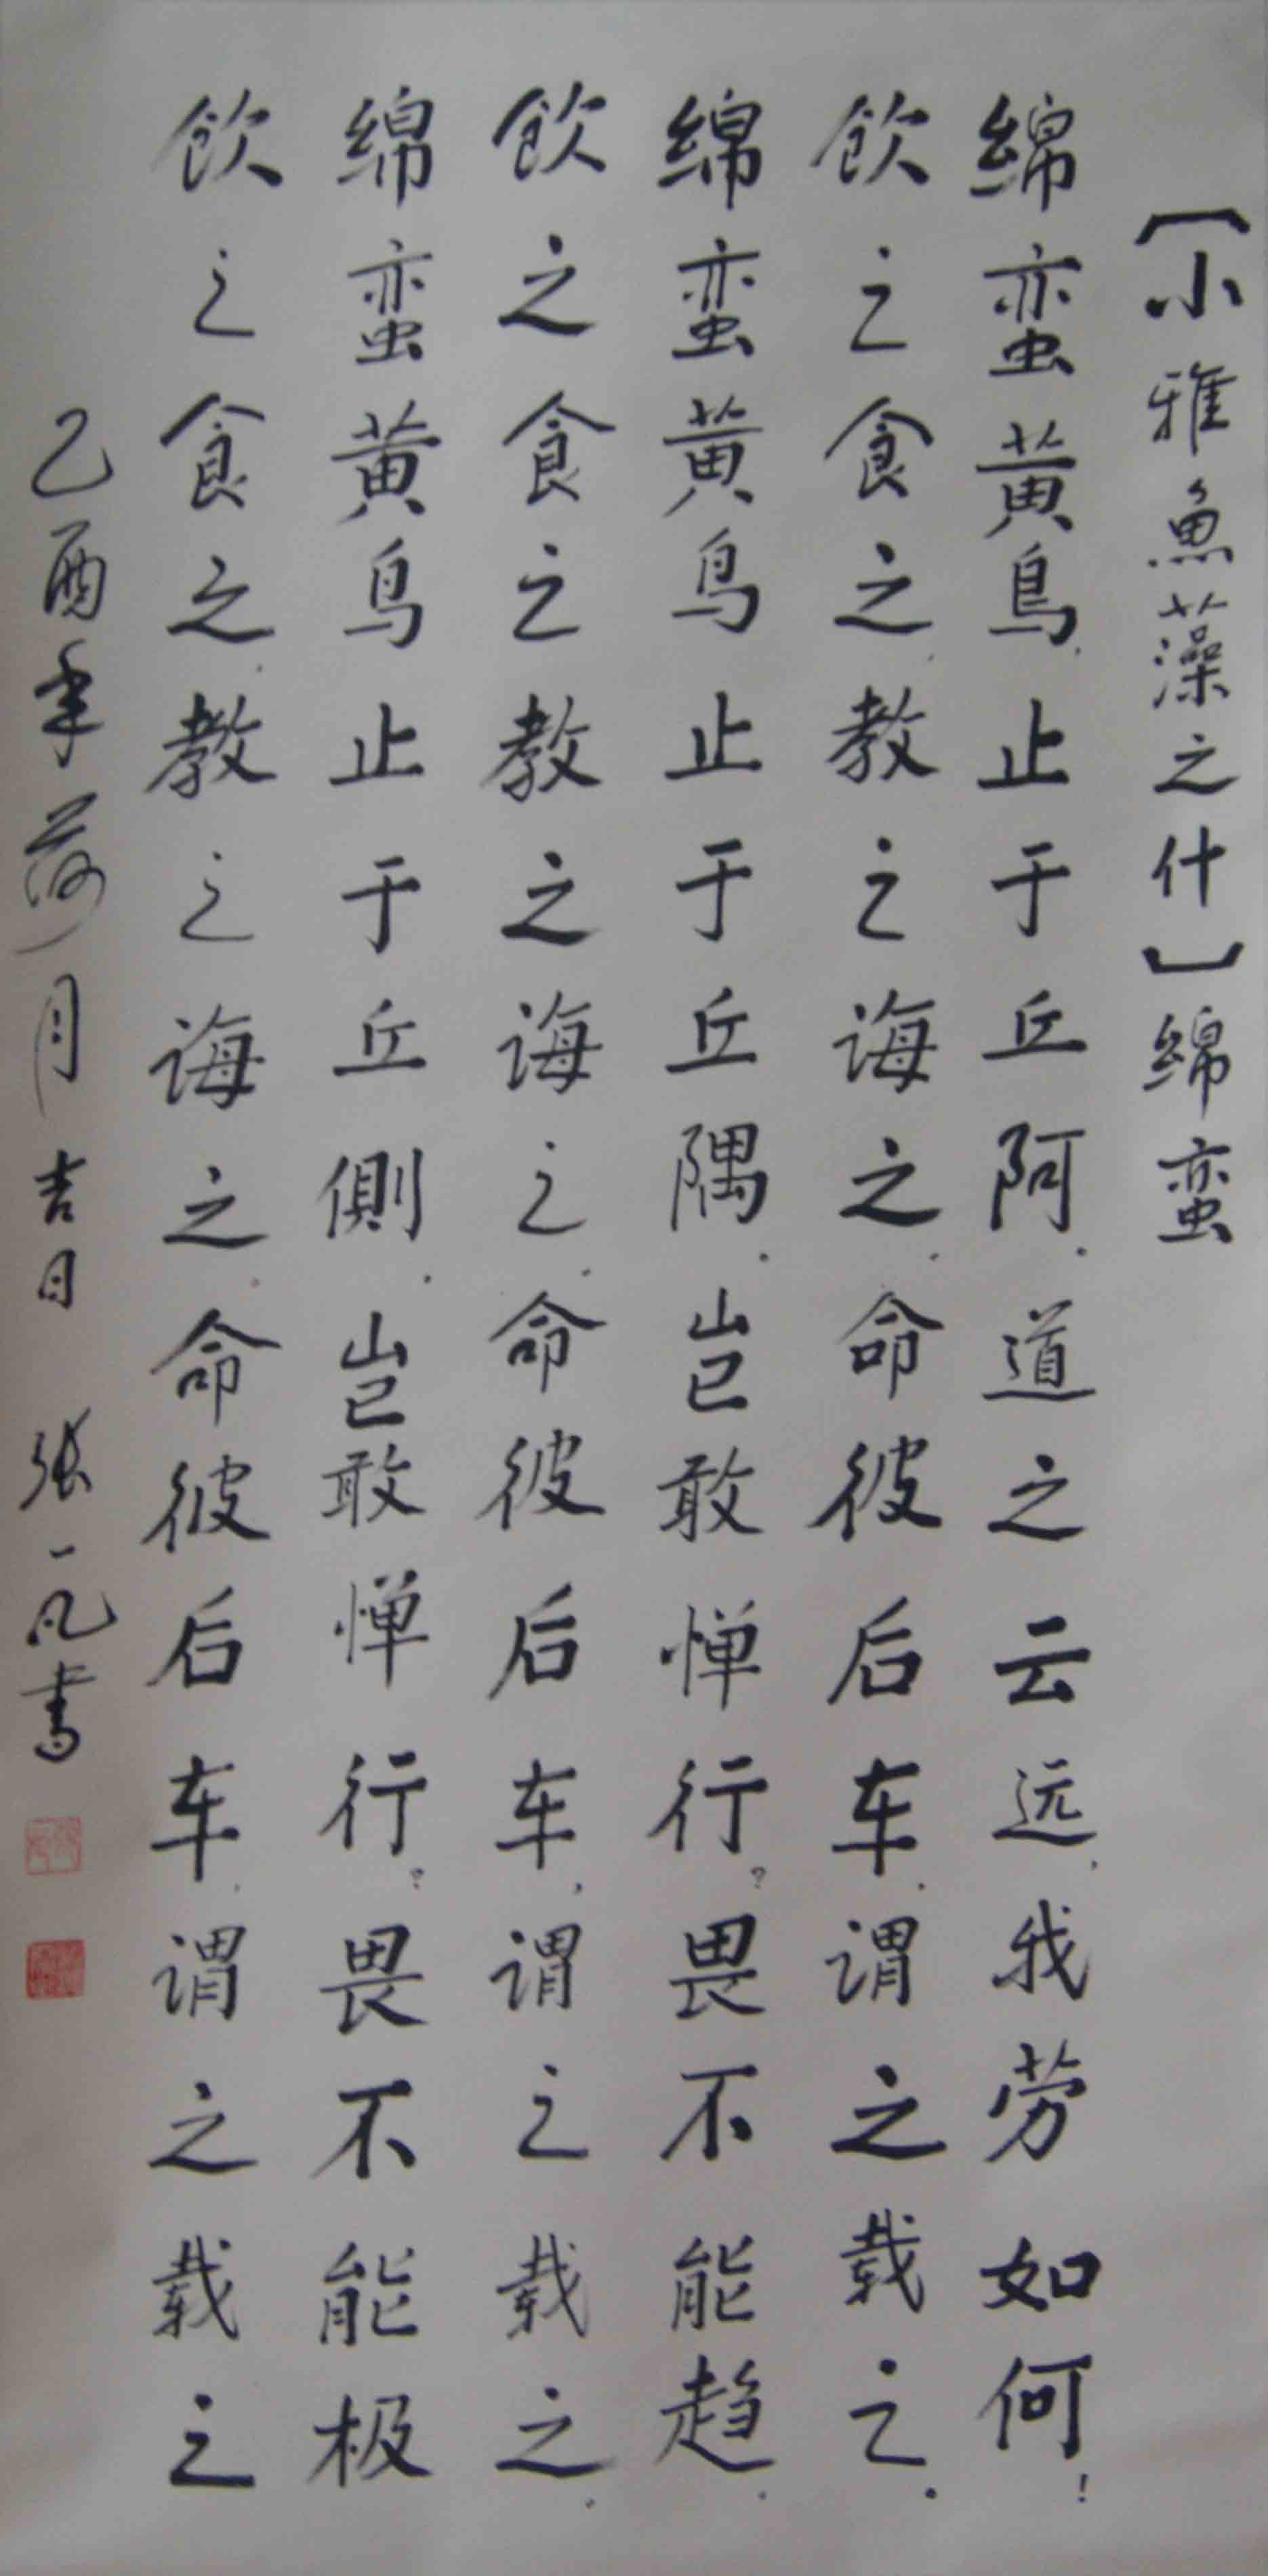 【小雅魚藻之什】绵蛮
绵蛮黄鳥,止于丘阿.道之云远,我劳如何!
飲之食之,教之诲之.命彼后车,谓之载之.
绵蛮黄鸟止于丘隅.岂敢惮行?畏不能趋.
飲之食之教之诲之.命彼后车,谓之载之.
绵蛮黄鸟止于丘側.岂敢惮行?畏不能极
飲之食之,教之诲之.命彼后车,谓之载之
乙酉年荷月吉日 张一凡書